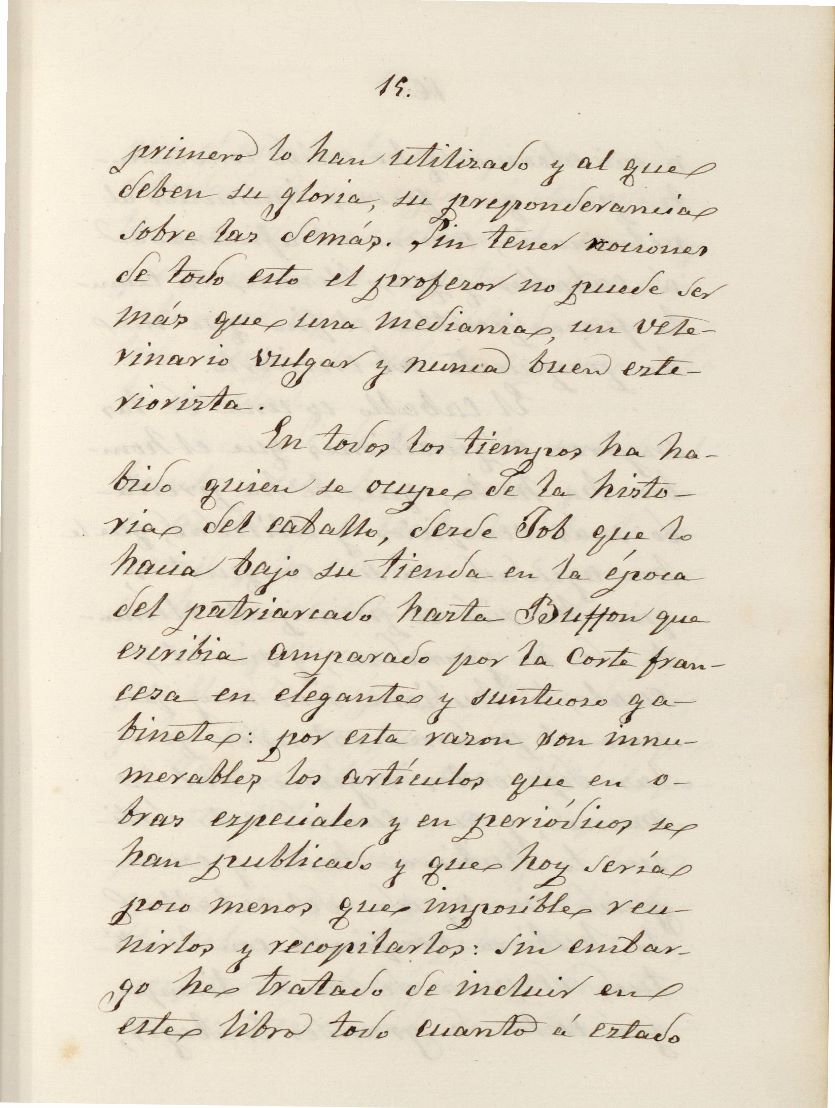 15.
primero lo han utilizado y al que
deben su gloria, su preponderancia
sobre las demás. Sin tener nociones
de todo esto el profesor no puede ser
más que una mediania, un vete-
rinario vulgar y nunca buen exte-
riorista.
En todos los tiempos ha ha-
bido quien se ocupe de la histo-
ria del caballo, desde Job que lo
hacia bajo su tienda en la época
del patriarcado hasta Buffon que
escribia amparado por la Corte fran-
cesa en elegante y suntuoso ga-
binete: por esta razon son innu-
merables los artículos que en o-
bras especiales y en periódicos se
han publicado y que hoy sería
poco menos que imposible reu-
nirlos y recopilarlos: sin embar-
go he tratado de incluir en
este libro todo cuanto á estado